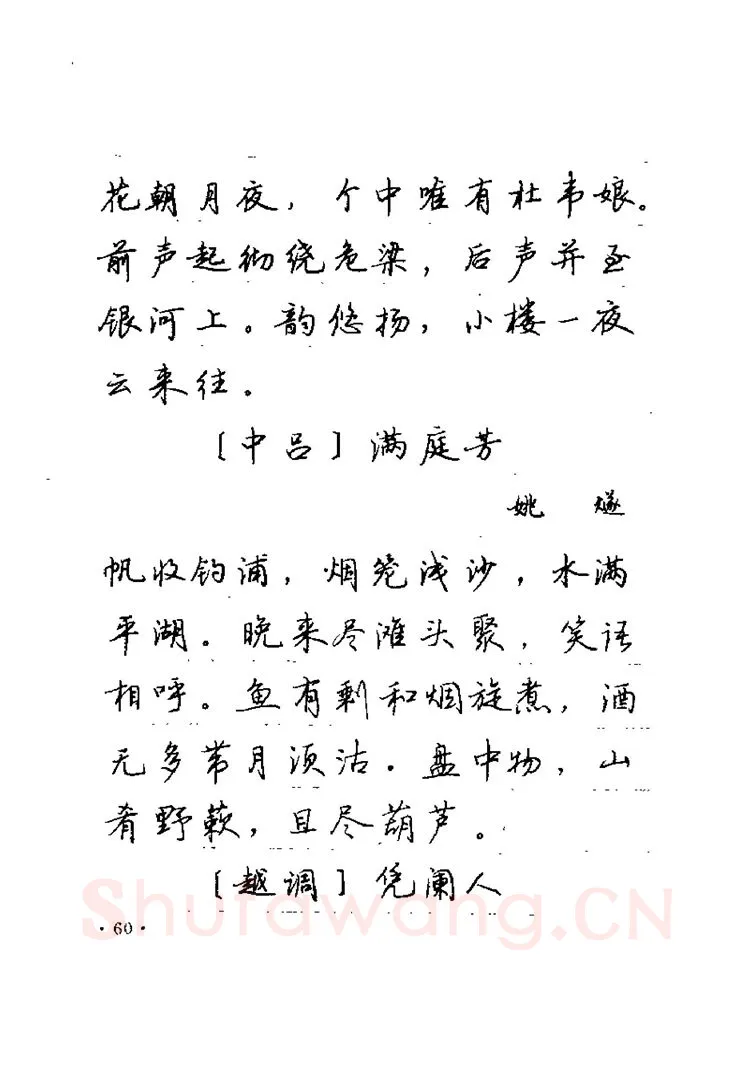 花朝月夜，个中唯有杜韦娘。
前声起彻绕危梁，后声并至
银河上。韵悠扬，小楼一夜
云来往。
［中吕］满庭芳
姚 燧
帆收钓浦，烟笼浅沙，水满
平湖。晚来尽滩头聚，笑语
相呼。鱼有剩和烟旋煮，酒
无多带月须沽。盘中物，山
肴野蔌，且尽葫芦。
［越调］凭阑人
Shufawang.CN
·60·